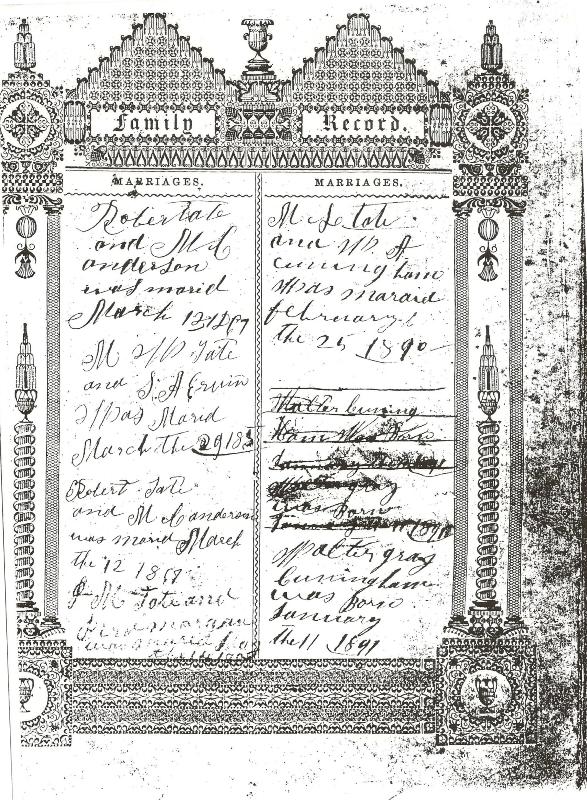 Family Record.
MARRIAGES.
Robert tate
and M C
anderson
was marid
March 12 1867
M W Tate
and S A Ervin
Was Marid
March the 29 188
Robert Tate
and M C anderson
was marid March
the 12 1867
J M Tate and
morgan
was
MARRIAGES.
M L tate
and W A
cuningham
Was maraid
february
the 25 1890
Walter Cuning
Ham Was Born
January
Walter gray
was Born
Walter gray
Cuningham
was Born
January
the 11 1891